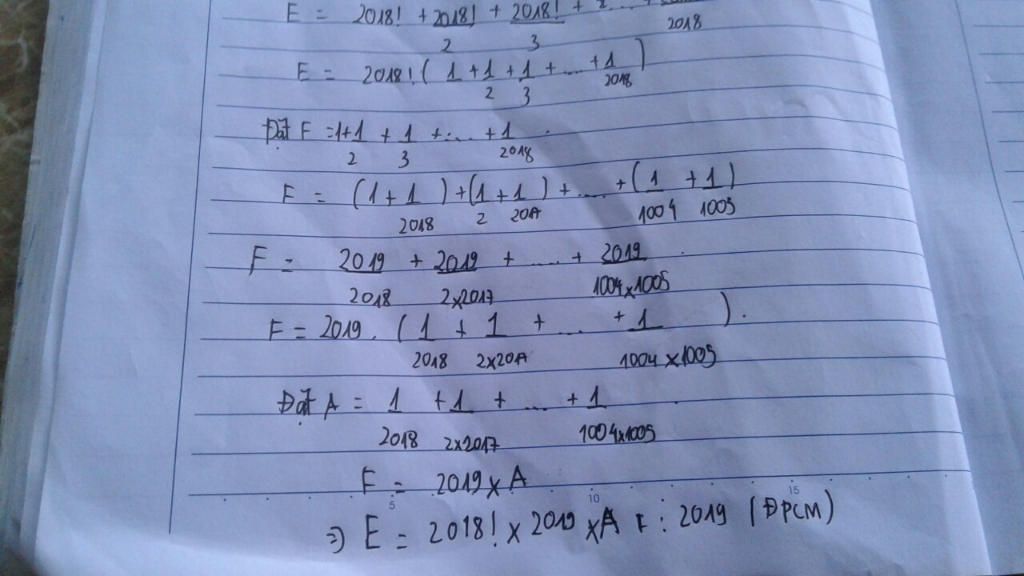 E = 2018! + 2018!/2 + 2018!/3 + ... + /2018
E = 2018! ( 1 + 1/2 + 1/3 + ... + 1/2018 )
Đặt F = 1 + 1/2 + 1/3 + ... + 1/2018
F = ( 1 + 1/2018 ) + ( 1/2 + 1/2017 ) + ... + ( 1/1004 + 1/1005 )
F = 2019/2018 + 2019/2x2017 + ... + 2019/1004x1005
F = 2019 . ( 1/2018 + 1/2x2017 + ... + 1/1004x1005 ) .
Đặt A = 1/2018 + 1/2x2017 + ... + 1/1004x1005
F = 2019 x A
5 10 15
=) E = 2018! x 2019 x A ⋮ 2019 (ĐPCM)